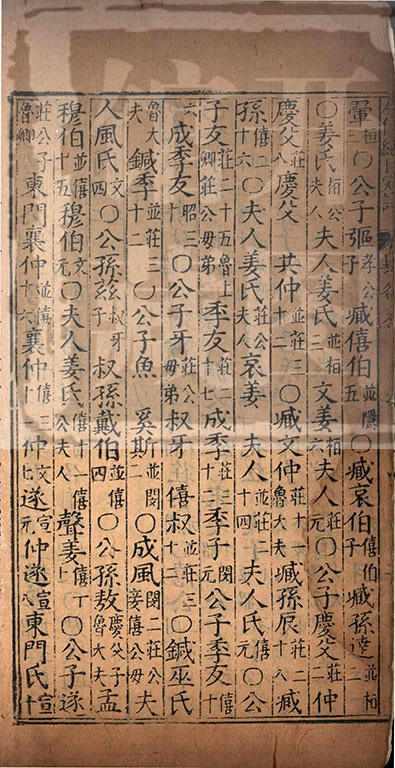 翬桓三○公子彄孝公子臧僖伯並隱五○臧哀伯僖伯子臧孫達並桓二
○姜氏桓公夫人夫人姜氏並桓三文姜桓六夫人莊元○公子慶父莊二仲
慶父莊八慶父共仲並莊三十二○臧文仲莊十一魯大夫臧孫辰莊二十八臧
孫僖二十六○夫人姜氏莊公夫人哀姜夫人並莊二十四夫人氏僖元○公
子友莊二十五魯上卿莊公毋弟季友莊二十七成季莊三十二季子閔元公子季友僖十
六成季友昭三十○公子牙莊公毋弟叔牙僖叔並莊三十二○鍼巫氏
魯大夫鍼季並莊三十二○公子魚奚斯並閔二○成風閔二莊公妾僖公毋夫
人風氏文四○公孫茲叔牙子叔孫戴伯並僖四○公孫敖慶父子魯大夫孟
穆伯並僖十五穆伯文元○夫人姜氏僖十一僖公夫人聲姜僖十○公子遂
莊公子魯卿東門襄仲並僖二十六襄仲僖三十仲文七遂宣元仲遂宣八東門氏宣十